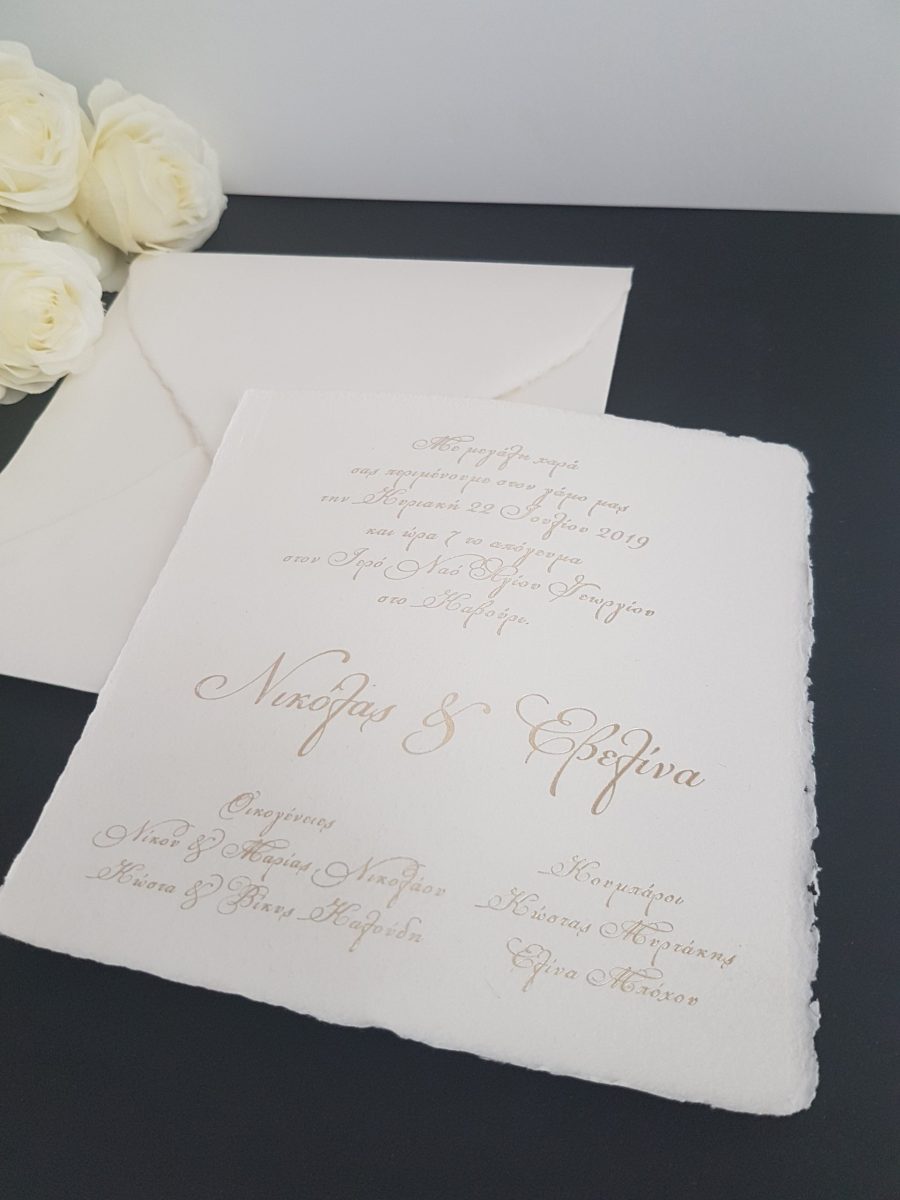 Με μεγάλη χαρά
σας περιμένουμε στον γάμο μας
την Κυριακή 22 Ιουλίου 2019
και ώρα 7 το απόγευμα
στον Ιερό Ναό Αγίου Γεωργίου
στο Καβούρι.
Νικόλας & Εβελίνα
Οικογένειες
Νίκου & Μαρίας Νικολάου
Κώστα & Βίκυς Καλούδη
Κουμπάροι
Κώστας Μυρτάκης
Ελίνα Μπόχου